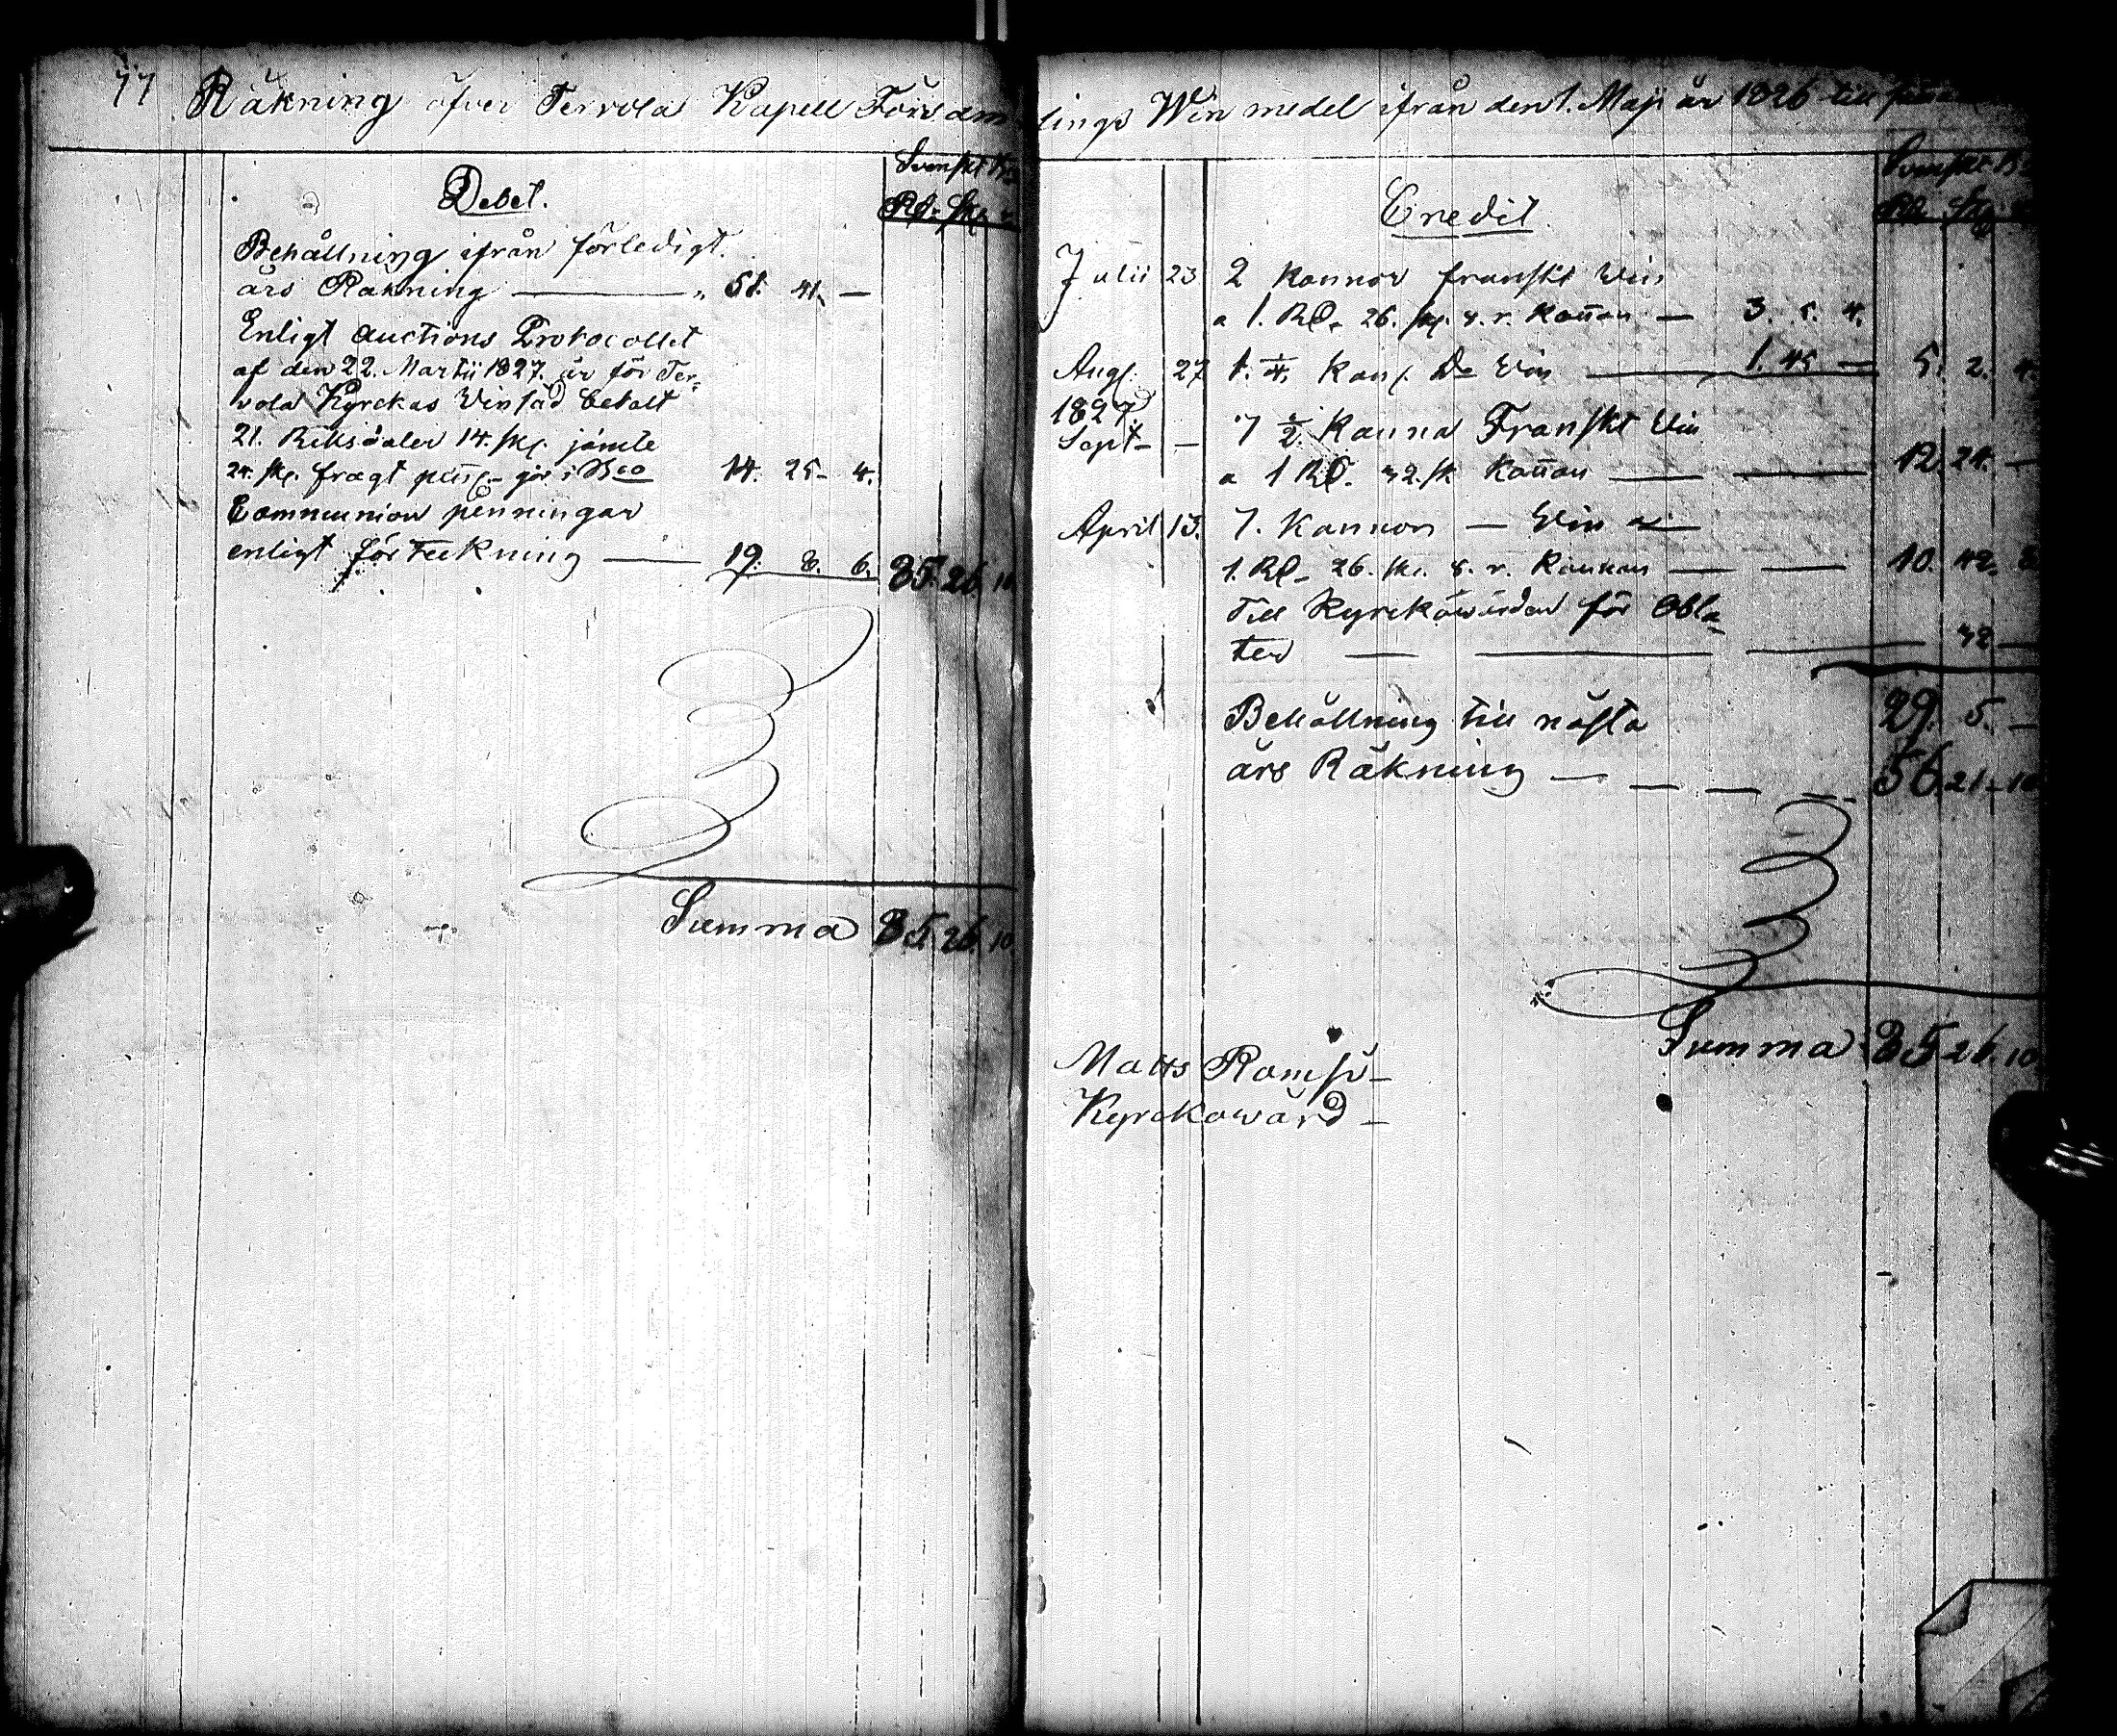 77 Räkning öfver Tervola Kapell Församlings Win medel ifrån den 1. Maji år 1826 till
Svenskt
Rd: sk:
Debet.
Behållning ifrån förledigt.
års Räkning — 51. 41. —
Enligt Auctions Protocollet
af den 22. Martii 1827 är för Ter-
vola Kyrckas Vinsäd betalt
21. Riksdaler 14. sk. jämte
24. sk. fragt peñ. gör i Bco 14. 25. 4.
Communion penningar
enligt förteckning — 19. 8. 6. 85. 26. 10
Summa 85 26. 10
Svenskt
Rd sk
Credit
Julii 23 2 Kannor franskt Vin
a 1. Rd. 26. sk. 8. r. Kañan — 3. 5. 4.
Aug. 27 1. 1/4. Kan. Do Vin — 1. 45 — 5. 2. 4.
1827
Sept — 7 1/2 Kanna Franskt Vin
a 1 Rd. 32. sk Kañan — 12. 24. —
April 13. 7. Kannor — Vin a —
1. Rd 26. sk. 8. r. Kannan — 10. 42. 8
Till Kyrckowärden för Obla-
ter — 32 —
29. 5. —
Behållning till nästa
års Räkning — 56. 21. 10
Summa 85 26. 10
Matts
Kyrckowärd